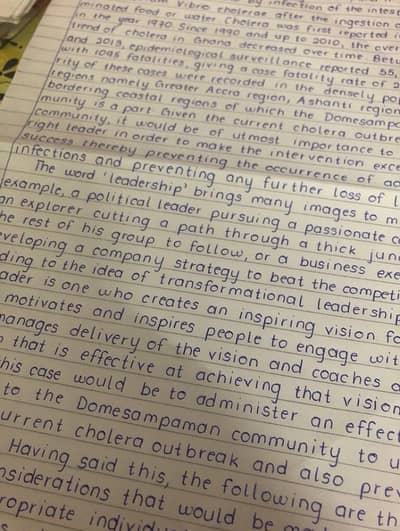 by infection of the intest
minated food or water. Cholera
Vibrio cholerae after the ingestion
in the year 1970. Since 1990 and up to 2010, the over
trend of cholera in Ghana decreased over time. Betw
and 2015, epidemiological surveillance reported 55,
with 1088 fatalities, giving a case fatality rate of 2
rity of these cases were recorded in the densely po
regions namely Greater Accra region, Ashanti region
bordering coastal regions of which the Domesampa
munity is a part. Given the current cholera outbre
community, it would be of utmost importance to
right leader in order to make the intervention exce
success thereby preventing the occurrence of ad
infections and preventing any further loss of l
The word 'leadership' brings many images to m
example, a political leader pursuing a passionate c
an explorer cutting a path through a thick jun
he rest of his group to follow, or a business exe
eveloping a company strategy to beat the competi
ding to the idea of transformational leadership
ader is one who creates an inspiring vision fo
motivates and inspires people to engage wit
manages delivery of the vision and coaches a
that is effective at achieving that vision
his case would be to administer an effect
to the Domesampaman community to u
urrent cholera outbreak and also prev
Having said this, the following are th
nsiderations that would be
ropriate individu